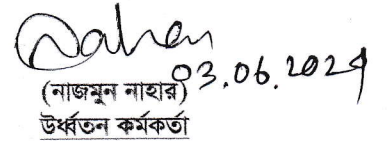 Nahar
03.06.2024
(নাজমুন নাহার)
উর্ধ্বতন কর্মকর্তা